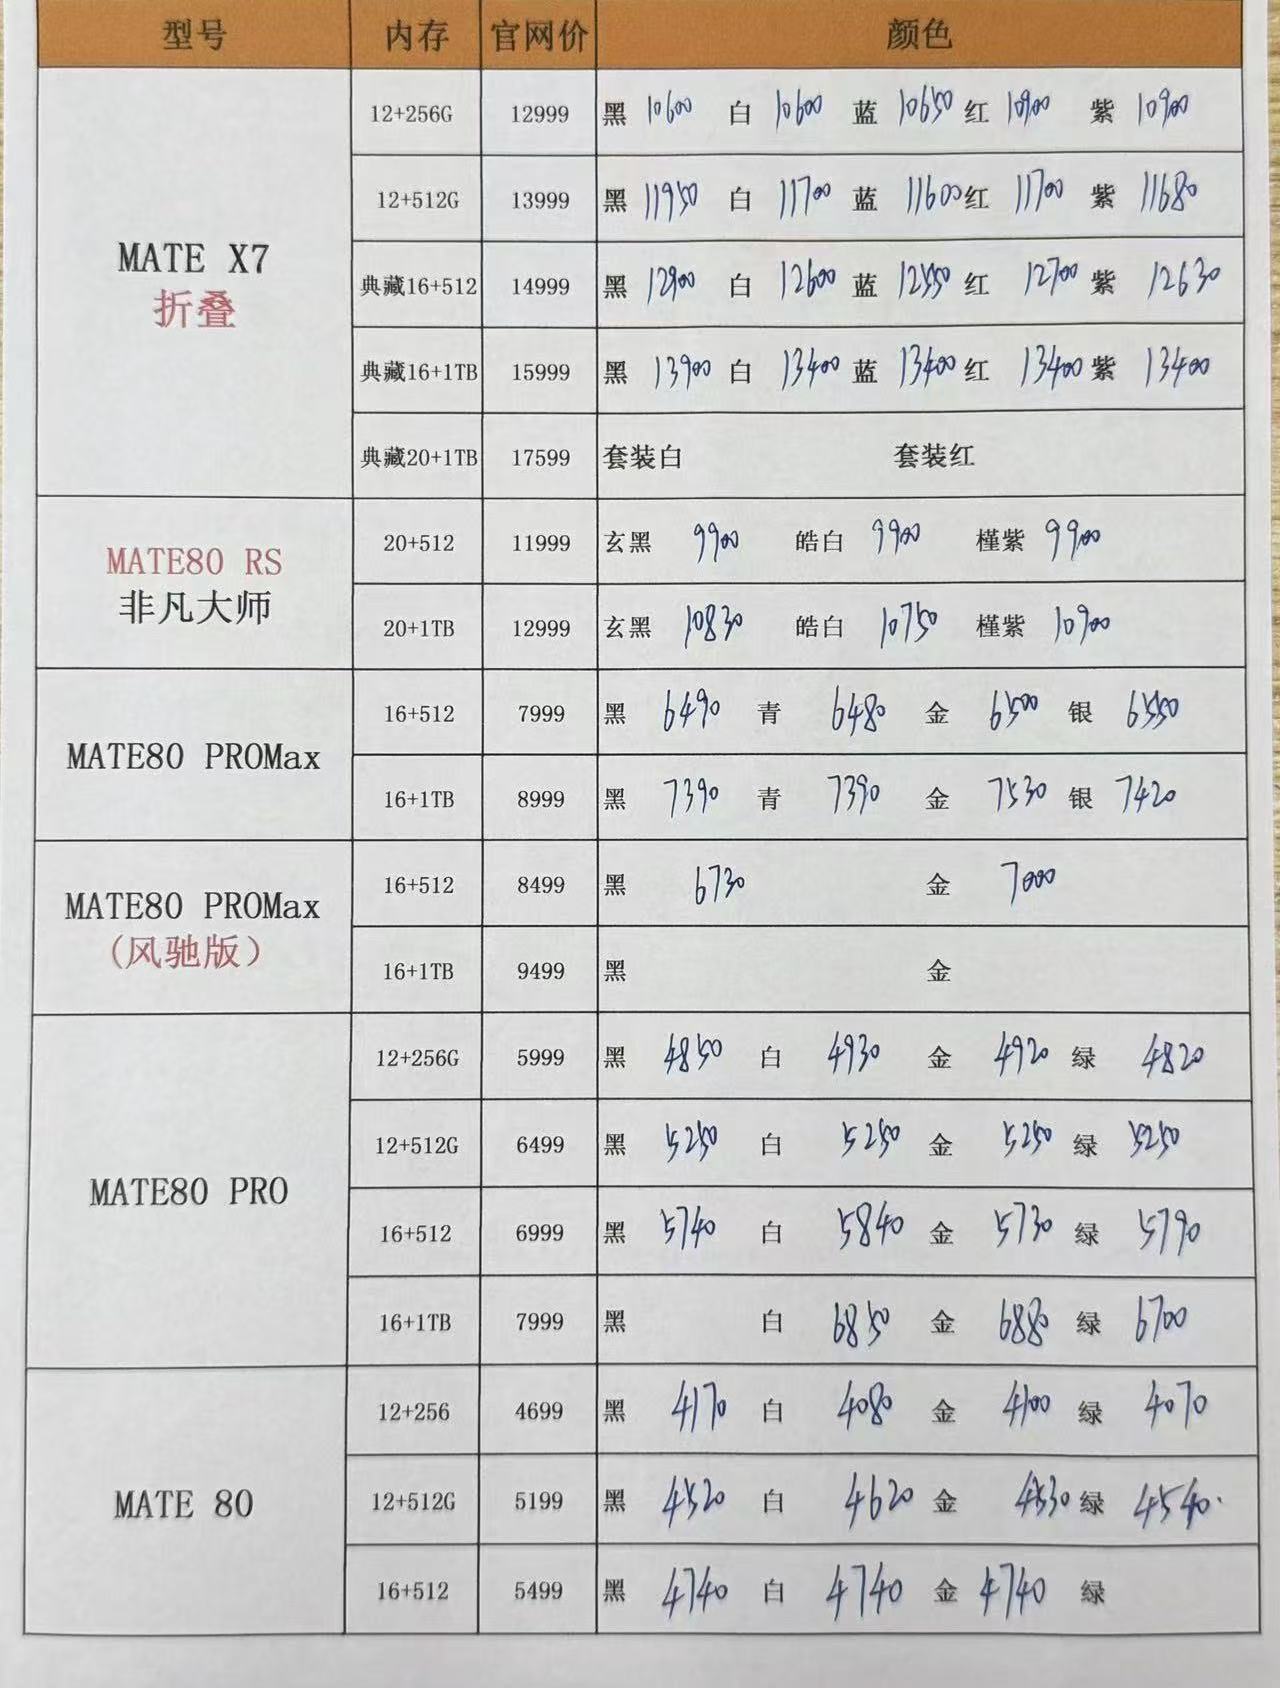 型号 内存 官网价 颜色
MATE X7
折叠
12+256G 12999 黑 10600 白 10600 蓝 10650 红 10900 紫 10900
12+512G 13999 黑 11950 白 11700 蓝 11600 红 11700 紫 11680
典藏16+512 14999 黑 12900 白 12600 蓝 12550 红 12700 紫 12630
典藏16+1TB 15999 黑 13900 白 13400 蓝 13400 红 13400 紫 13400
典藏20+1TB 17599 套装白 套装红
MATE80 RS
非凡大师
20+512 11999 玄黑 9900 皓白 9900 槿紫 9900
20+1TB 12999 玄黑 10830 皓白 10750 槿紫 10900
MATE80 PROMax
16+512 7999 黑 6490 青 6480 金 6500 银 6550
16+1TB 8999 黑 7390 青 7390 金 7530 银 7420
MATE80 PROMax
(风驰版）
16+512 8499 黑 6730 金 7000
16+1TB 9499 黑 金
MATE80 PRO
12+256G 5999 黑 4850 白 4930 金 4920 绿 4820
12+512G 6499 黑 5250 白 5250 金 5250 绿 5250
16+512 6999 黑 5740 白 5840 金 5730 绿 5790
16+1TB 7999 黑 白 6850 金 6880 绿 6700
MATE 80
12+256 4699 黑 4170 白 4080 金 4100 绿 4070
12+512G 5199 黑 4520 白 4620 金 4530 绿 4540
16+512 5499 黑 4740 白 4740 金 4740 绿